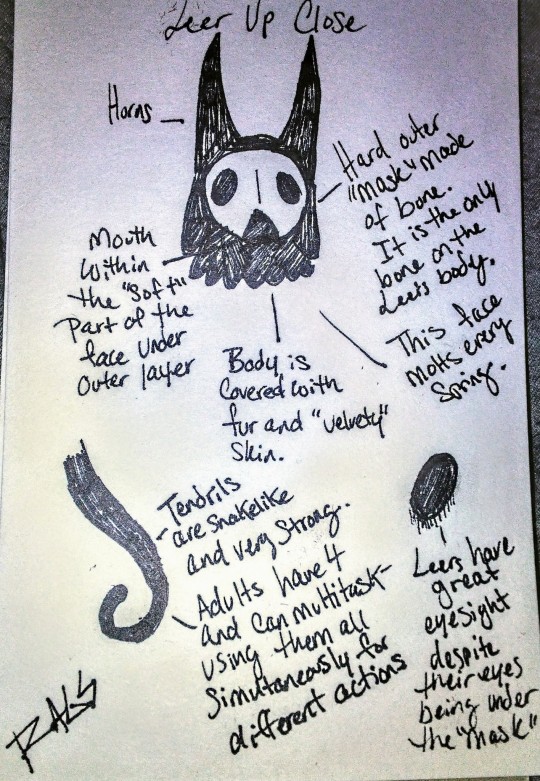 Leer Up Close
Horns
Hard outer
"mask" made
of bone.
It is the only
bone on the
Leers body.
This face
molts every
Spring.
Mouth
Within
the "Soft"
Part of the
face under
Outer layer
Body is
Covered with
fur and "velvety"
Skin.
Tendrils
are snakelike
and very Strong.
Adults have 4
and can multitask
using them all
Simultaneously for
different actions
Leers have
great
eyesight
despite
their eyes
being under
the "mask"
RALS